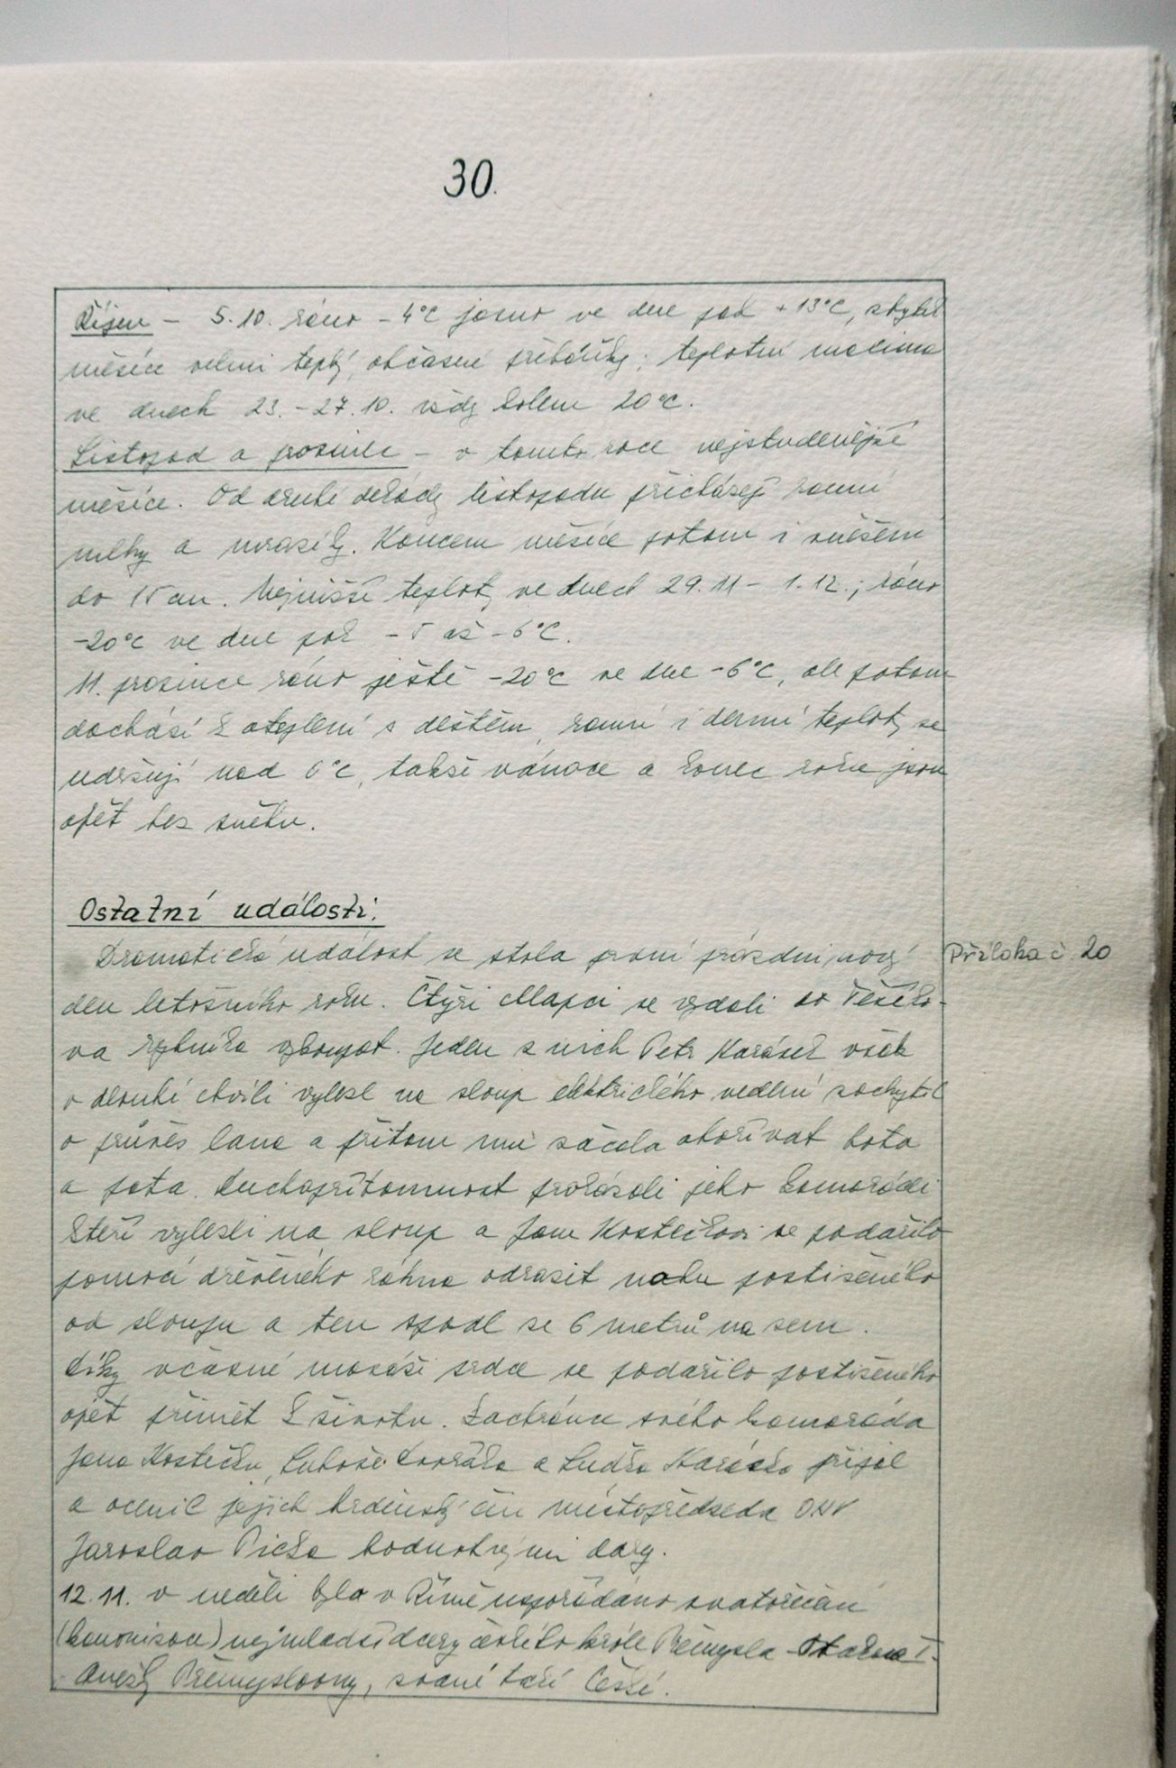 30.
Říjen - 5.10. ráno -4°C jasno ve dne pak +13°C, zbytek
měsíce velmi teplý, občasné přeháňky; teplotní maxima
ve dnech 23.-27.10. vždy kolem 20°C.
Listopad a prosinec - v tomto roce nejstudenější
měsíce. Od druhé dekády listopadu přicházejí ranní
mlhy a mrazíky. Koncem měsíce potom i sněžení
do 15 cm. Nejnižší teploty ve dnech 29.11 - 1.12.; ráno
-20°C ve dne pak -5 až -6°C.
11. prosince ráno ještě -20°C ve dne -6°C, ale potom
dochází k oteplení s deštěm, ranní i denní teploty se
udržují nad 0°C, takže vánoce a konec roku jsou
opět bez sněhu.
Ostatní události:
Dramatická událost se stala první prázdninový Příloha č 20
den letošního roku. Čtyři chlapci se vydali do
va rybníka vykoupat. Jeden z nich Petr Karásek však
v dlouhé chvíli vylezl na sloup elektrického vedení zachytil
o průvěs lana a přitom mu začala ohořívat bota
a pata. Duchapřítomnost prokázali jeho kamarádi
kteří vylezli na sloup a Janu Kostečkovi se podařilo
pomocí dřevěného ráhna odrazit nohu postiženého
od sloupu a ten spadl se 6 metrů na zem.
Díky včasné masáži srdce se podařilo postiženého
opět přimět k životu. Záchránce svého kamaráda
Jana Kostečku, Luboše Dvořáka a Luďka Karáska přijal
a ocenil jejich hrdinský čin místopředseda ONV
Jaroslav Picka hodnotnými dary.
12.11. v neděli byla v Římě uspořádáno svatořečení
(kanonizace) nejmladší dcery českého krále Přemysla Otakara I.
Anežky Přemyslovny, zvané též České.